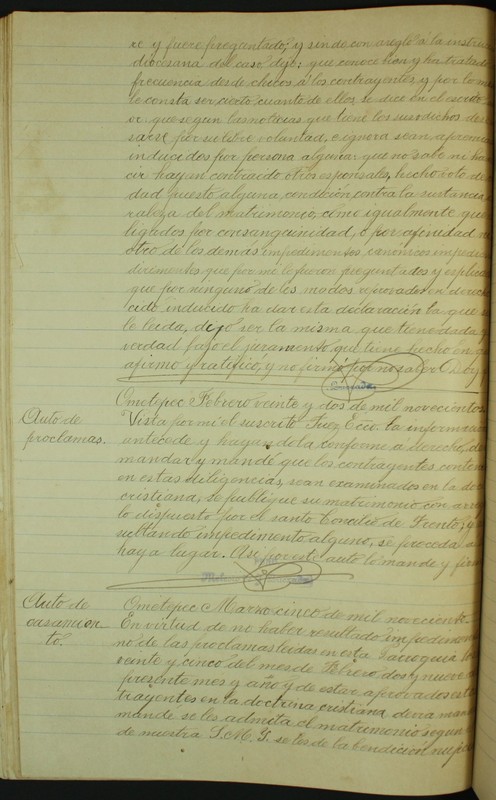 re y fuere preguntado; y siendo con areglo á la instruc
diocesana del caso dijo: que conoce han y ha tratado
frecuencia desde chicos á los contrayentes, y por lo
le consta ser cierto cuanto de ellos se dice en el
or que segun las noticias que tiene los susodichos
sarse por su libre voluntad, e ignora sean apremia
inducidos por persona alguna: que no sabe ni ha
cir hayan contraido otros esponsales, hecho voto de
dad puesto alguna condición contra la sustancia
raleza del matrimonio, cómo igualmente que
ligados por consanguinidad, ó por afinidad
otro de los demás impedimentos canónicos impedie
dirimentes que por mi le fueron preguntados y esplica
que por ninguno de los modos reprovados en derecho
cido inducido ha dar esta declaración la que
le leida, dijo ser la misma que tiene dada y
verdad bajo el juramento que tiene hecho en
afirmo y ratificó, y no firmó por no saber Doy
Ometepec Febrero veinte y dos de mil novecientos
Auto de proclamas.
Vista por mi el suscrito Juez Ecco. la informacion
antecede y hayandola conforme á derecho, de
mandar y mandé que los contrayentes conte
en estas diligencias, sean examinados en la doc
cristiana, se publique su matrimonio con arre
lo dispuesto por el santo Concilio de Trento; y
sultando impedimento alguno, se proceda
haya lugar. Asi por este auto lo mande y firm
Auto de casamien-to.
Ometepec Marzo cinco de mil noveciento
En virtud de no haber resultado impedimen
no de las proclamas leidas en esta Parroquia los
veinte y cinco del mes de Febrero, dos y nueve
presente mes y año y de estar aprovados esto
trayentes en la doctrina cristiana devia man
mande se les admita el matrimonio segun
de nuestra S. M. Y. se les de la bendicion nupci